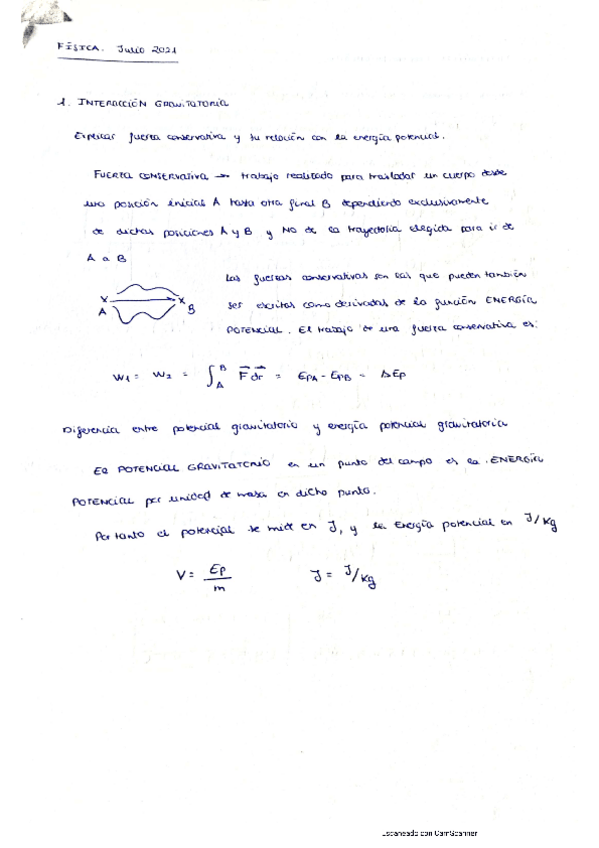 FÍSICA. Julio 2021
1. INTERACCIÓN GRAVITATORIA
Explicar fuerza conservativa y su relación con la energía potencial.
FUERZA CONSERVATIVA → trabajo realizado para trasladar un cuerpo desde
una posición inicial A hasta otra final B dependiendo exclusivamente
de dichas posiciones A y B y NO de la trayectoria elegida para ir de
A a B
Las fuerzas conservativas son las que pueden también
ser escritas como derivadas de la función ENERGÍA
POTENCIAL. El trabajo de una fuerza conservativa es:
A B
W1 = W2 = ∫_A^B F⃗ dr⃗ = EPA - EPB = ΔEp
Diferencia entre potencial gravitatorio y energía potencial gravitatoria
El POTENCIAL GRAVITATORIO en un punto del campo es la ENERGÍA
POTENCIAL por unidad de masa en dicho punto.
Por tanto el potencial se mide en J, y la energía potencial en J/kg
V = Ep/m J = J/kg
Escaneado con CamScanner